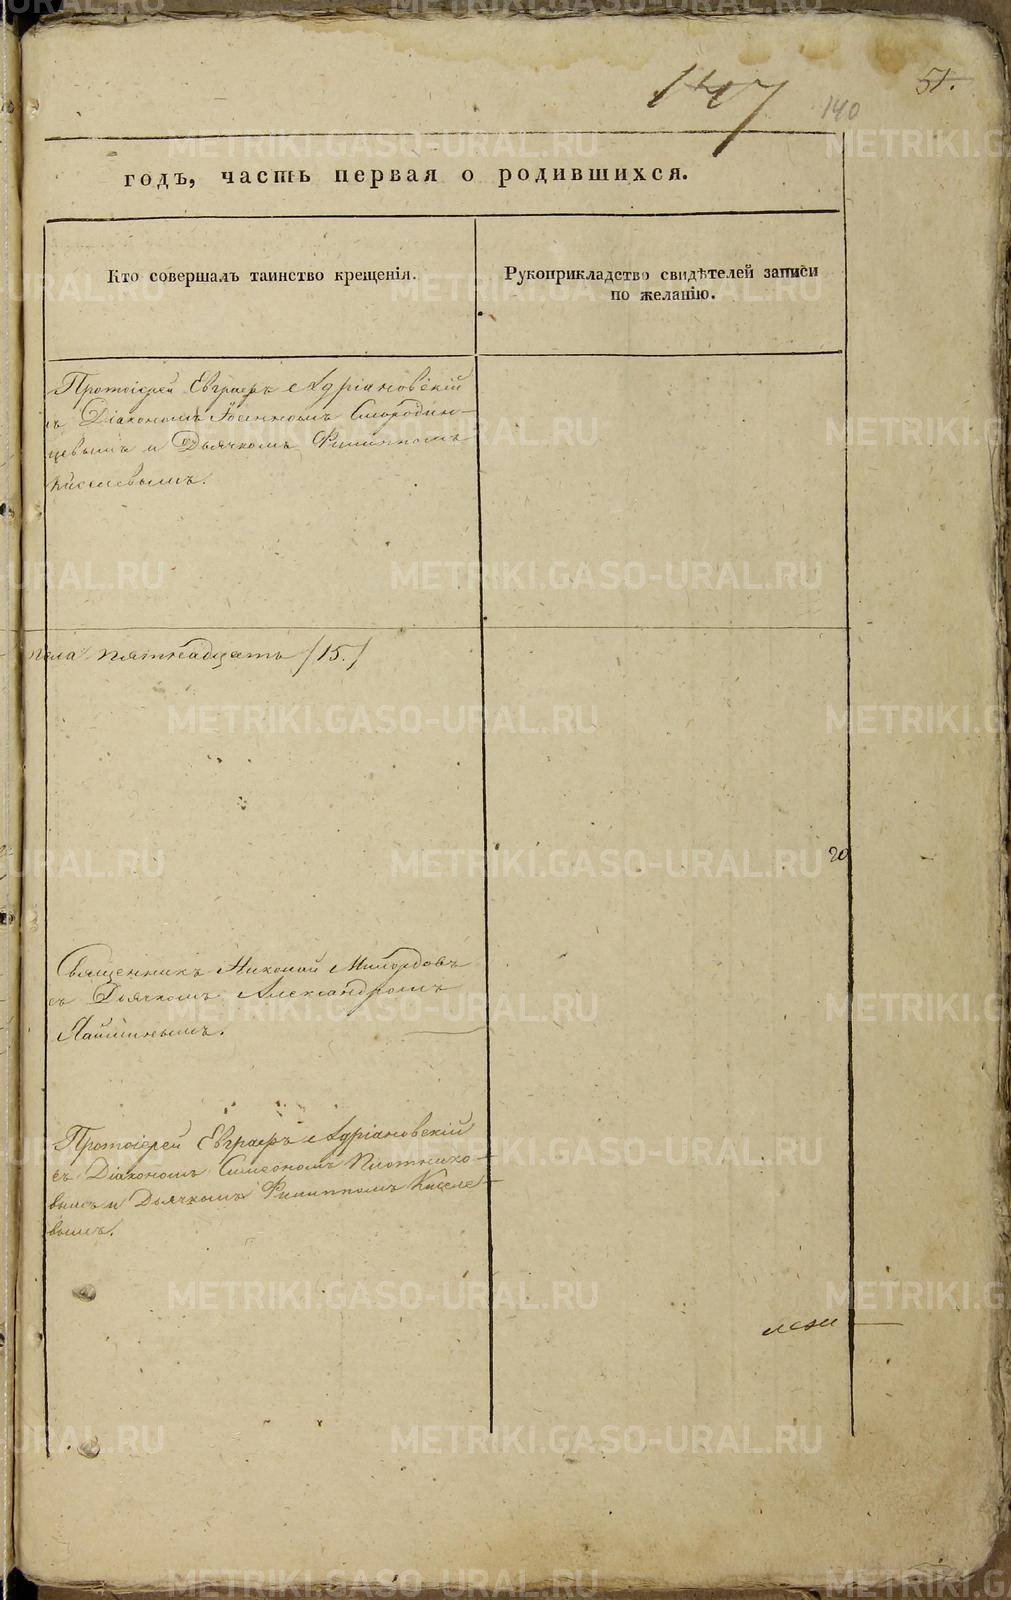 147
140
51.
годъ, часть первая о родившихся.
Кто совершалъ таинство крещенія.
Рукоприкладство свидѣтелей записи
по желанію.
Протоіерей Евграфъ Адріановскій
съ Діакономъ Іоанномъ Смородин-
цевымъ и Дьячкомъ Филиппомъ
Киселевымъ.
пола пятнадцать /15./
20
Священникъ Николай Милордовъ
съ Дьячкомъ Александромъ
Протоіерей Евграфъ Адріановскій
съ Діакономъ Симеономъ Плотнико-
вымъ и Дьячкомъ Филиппомъ Киселе-
вымъ.
METRIKI.GASO-URAL.RU